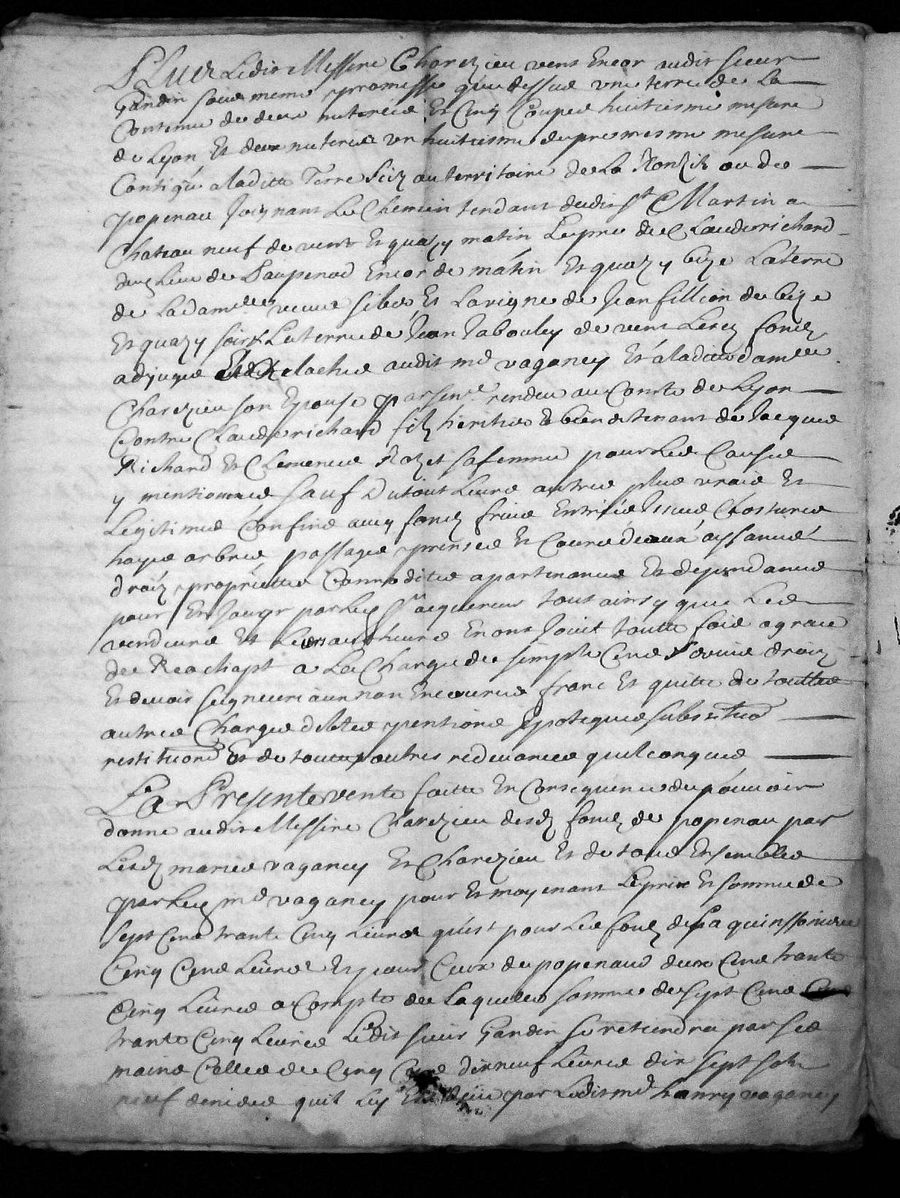 Plus Ledit Messire Charezieu vent Encor audit sieur
Gandin sous meme promesse que dessus une terre de La
Contenue de deux muterée Et Cinq Coupes huitiesme mesure
de Lyon Et deux muterée un huitiesme de pré mesme mesure
Contiqu a laditte Terre Sciz au territoire de La ou de
popenau Joignant Le Chemin tendant dudit St Martin a
Chateau neuf de vent Et quazy matin Le pré de Claude richard
du Lieu de Encor de matin Et quazy bize La terre
de La damlle veuve Et La vigne de Jean fillion de bize
Et quazy soir La terre de Jean Tabouley de vent Lesdz fondz
adjugée Et Relachée audit md vaganey Et a laditte damlle
Charezieu son Epouse par sence rendue au Conté de Lyon
Contre Claude richard filz héritier & biens tenant de Jacque
Richard Et Clemence sa femme pour Les Causes
y mentionnée Sauf du tout Leurs autres plus vrais Et
Legitimes Confins avec fondz frius Entrées Issues Clostures
hayes arbres passages prises Et Cours deaux aysances
droiz proprietté Commodités apartenances Et dependances
pour En Jouyr par Led Sr acquereur tout ainsy que Les
vendeurs Et Leurs autheurs En ont Jouit toutte fois a grace
de Reachapt a La Charge des simple Cens Servis droiz
Et devoir seigneuriaux non Encourus franc Et quitte de touttes
autres Charges dettes pentions Substitu͠o
restitu͠on Et de toutes autres redevances quelconques
La Presente vente faitte En Consequence du pouvoir
donné audit Messire Charezieu desdz fondz de popenau par
Lesdz mariés vaganey Et Charezieu Et de tous Ensembles
par Led md vaganey pour Et moyenant Le prix Et somme de
sept Cens trante Cinq Livres qu'est pour Les fondz de La
Cinq Cens Livres Et pour Ceux de popenaud deux Cens trante
Cinq Livres a Compte de Laquelle somme de sept Cens
trante Cinq Livres Ledit sieur Gandin se retiendra par ses
mains Celles de Cinq Cens dix neuf Livres dix sept sols
neuf deniers quil Luy Est deüe par Ledit md hanry vaganey